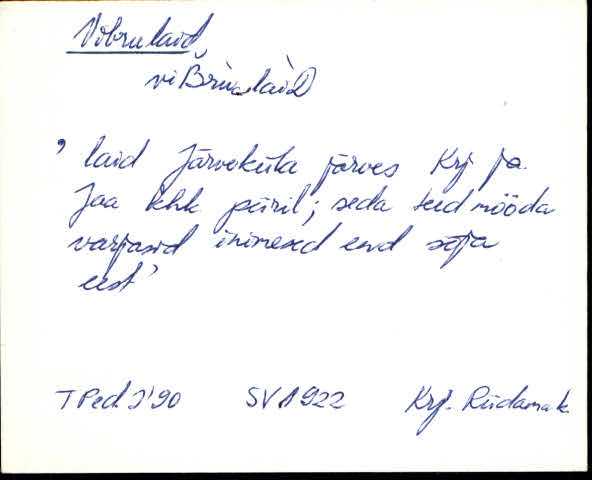 Võbrulaid,
viBru͔làiD
' laid Järveküla järves Krj ja
Jaa khk piiril; seda teed mööda
varjasid inimesed end sõja
eest'
TPed I '90 SV A922 Krj. Riidama k.